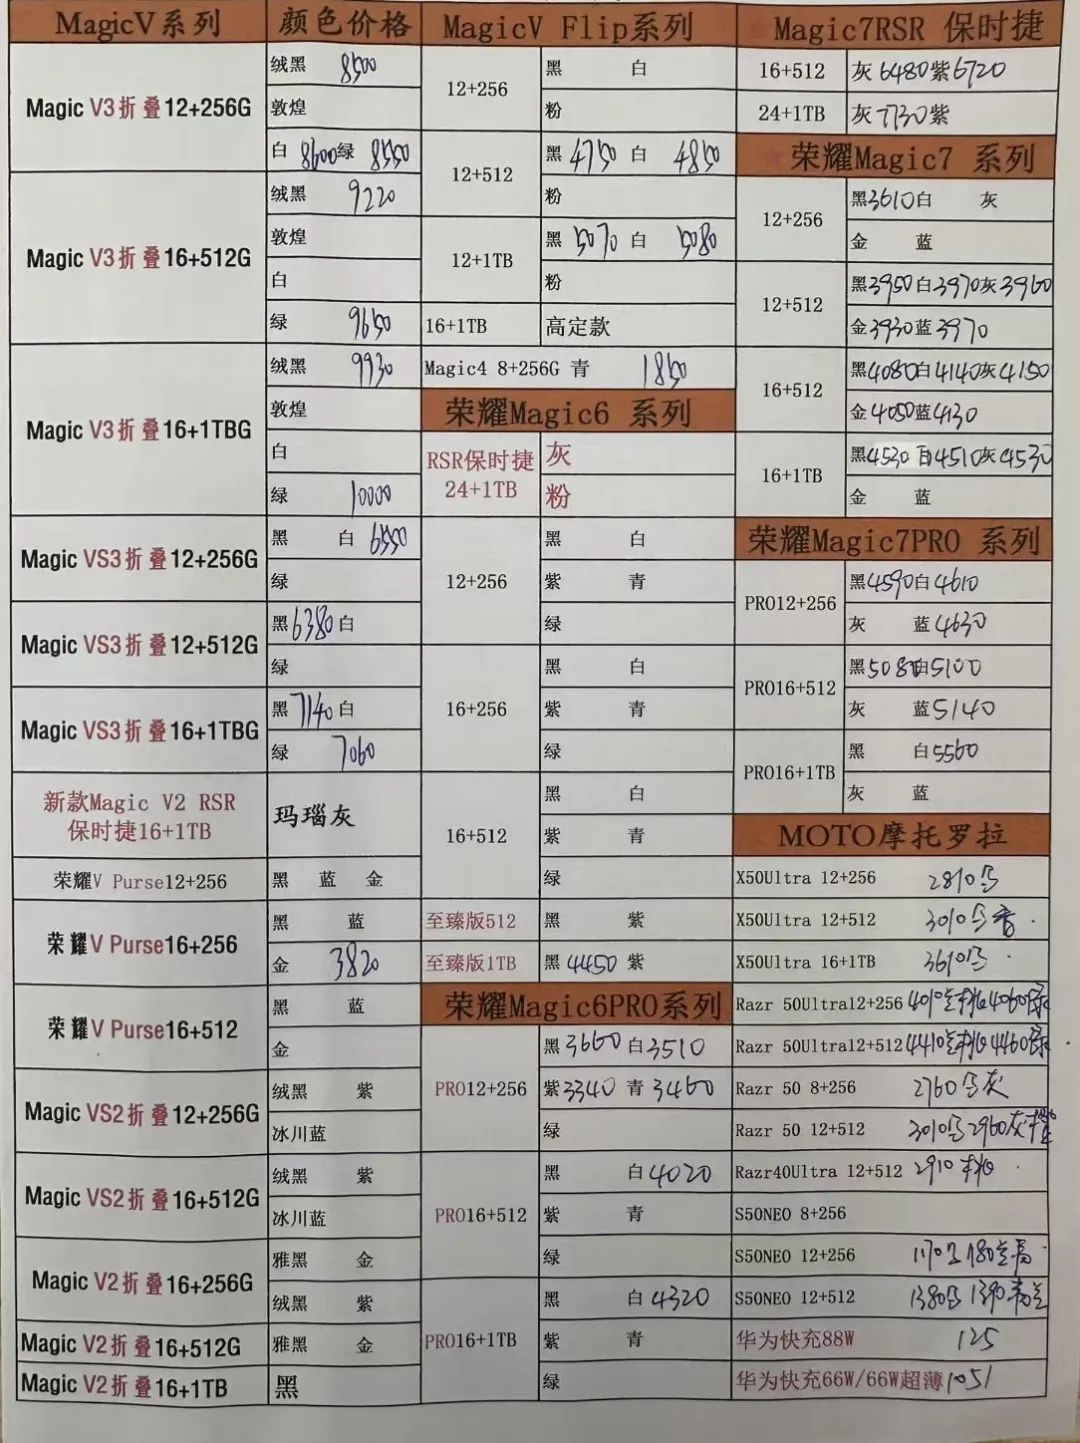 MagicV系列 颜色价格
Magic V3折叠12+256G
绒黑 8500
敦煌
白 8600绿 8550
Magic V3折叠16+512G
绒黑 9220
敦煌
白
绿 9650
Magic V3折叠16+1TBG
绒黑 9930
敦煌
白
绿 10000
Magic VS3折叠12+256G
黑 白 6550
绿
Magic VS3折叠12+512G
黑6380白
绿
Magic VS3折叠16+1TBG
黑7140白
绿 7060
新款Magic V2 RSR
保时捷16+1TB
玛瑙灰
荣耀V Purse12+256 黑 蓝 金
荣耀V Purse16+256
黑 蓝
金 3820
荣耀V Purse16+512
黑 蓝
金
Magic VS2折叠12+256G
绒黑 紫
冰川蓝
Magic VS2折叠16+512G
绒黑 紫
冰川蓝
Magic V2折叠16+256G
雅黑 金
绒黑 紫
Magic V2折叠16+512G 雅黑 金
Magic V2折叠16+1TB 黑
MagicV Flip系列
12+256
黑 白
粉
12+512
黑 4750 白 4850
粉
12+1TB
黑 5070 白 5080
粉
16+1TB 高定款
Magic4 8+256G 青 1850
荣耀Magic6 系列
RSR保时捷
24+1TB
灰
粉
12+256
黑 白
紫 青
绿
16+256
黑 白
紫 青
绿
16+512
黑 白
紫 青
绿
至臻版512 黑 紫
至臻版1TB 黑 4450 紫
荣耀Magic6PRO系列
PRO12+256
黑3660白3510
紫3340青3460
绿
PRO16+512
黑 白4020
紫 青
绿
PRO16+1TB
黑 白4320
紫 青
绿
★Magic7RSR 保时捷
16+512 灰6480紫6720
24+1TB 灰7730紫
★荣耀Magic7 系列
12+256
黑3610白 灰
金 蓝
12+512
黑3950白3970灰3960
金3930蓝3970
16+512
黑4080白4140灰4150
金4050蓝4130
16+1TB
黑4530白4510灰4530
金 蓝
荣耀Magic7PRO 系列
PRO12+256
黑4590白4610
灰 蓝4630
PRO16+512
黑5080白5100
灰 蓝5140
PRO16+1TB
黑 白5560
灰 蓝
MOTO摩托罗拉
X50Ultra 12+256 2810
X50Ultra 12+512 3010
X50Ultra 16+1TB 3610
Razr 50Ultra12+256 4010 4060
Razr 50Ultra12+512 4410 4460
Razr 50 8+256 2760 灰
Razr 50 12+512 3010 2960灰
Razr40Ultra 12+512 2910
S50NEO 8+256
S50NEO 12+256 1170 1180
S50NEO 12+512 1380 1390
华为快充88W 125
华为快充66W/66W超薄 1051